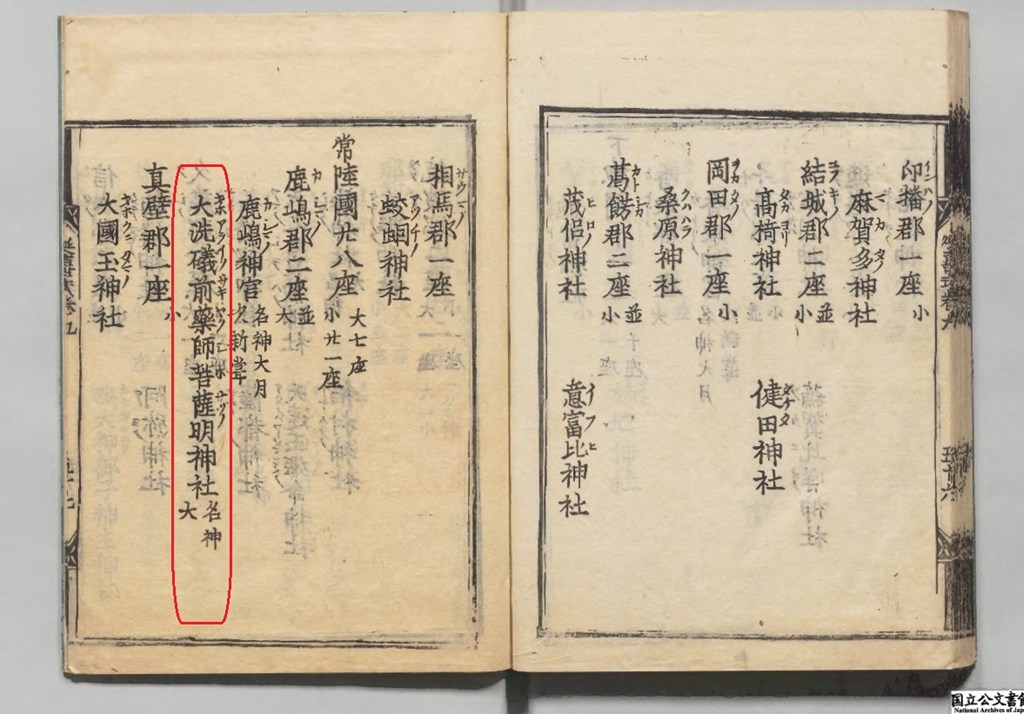 印播郡一座小
麻賀多神社
結城郡二座並小
高椅神社 健田神社
岡田郡一座小
桑原神社
葛餝郡二座並小
茂侶神社 意富比神社
相馬郡一座小
蛟蝄神社
常陸國廿八座大七座小廿一座
鹿嶋郡二座並大
鹿嶋神宮名神大月次新嘗
大洗礒前藥師菩薩明神社名神大
真壁郡一座小
大國玉神社
国立公文書館
National Archives of Japan